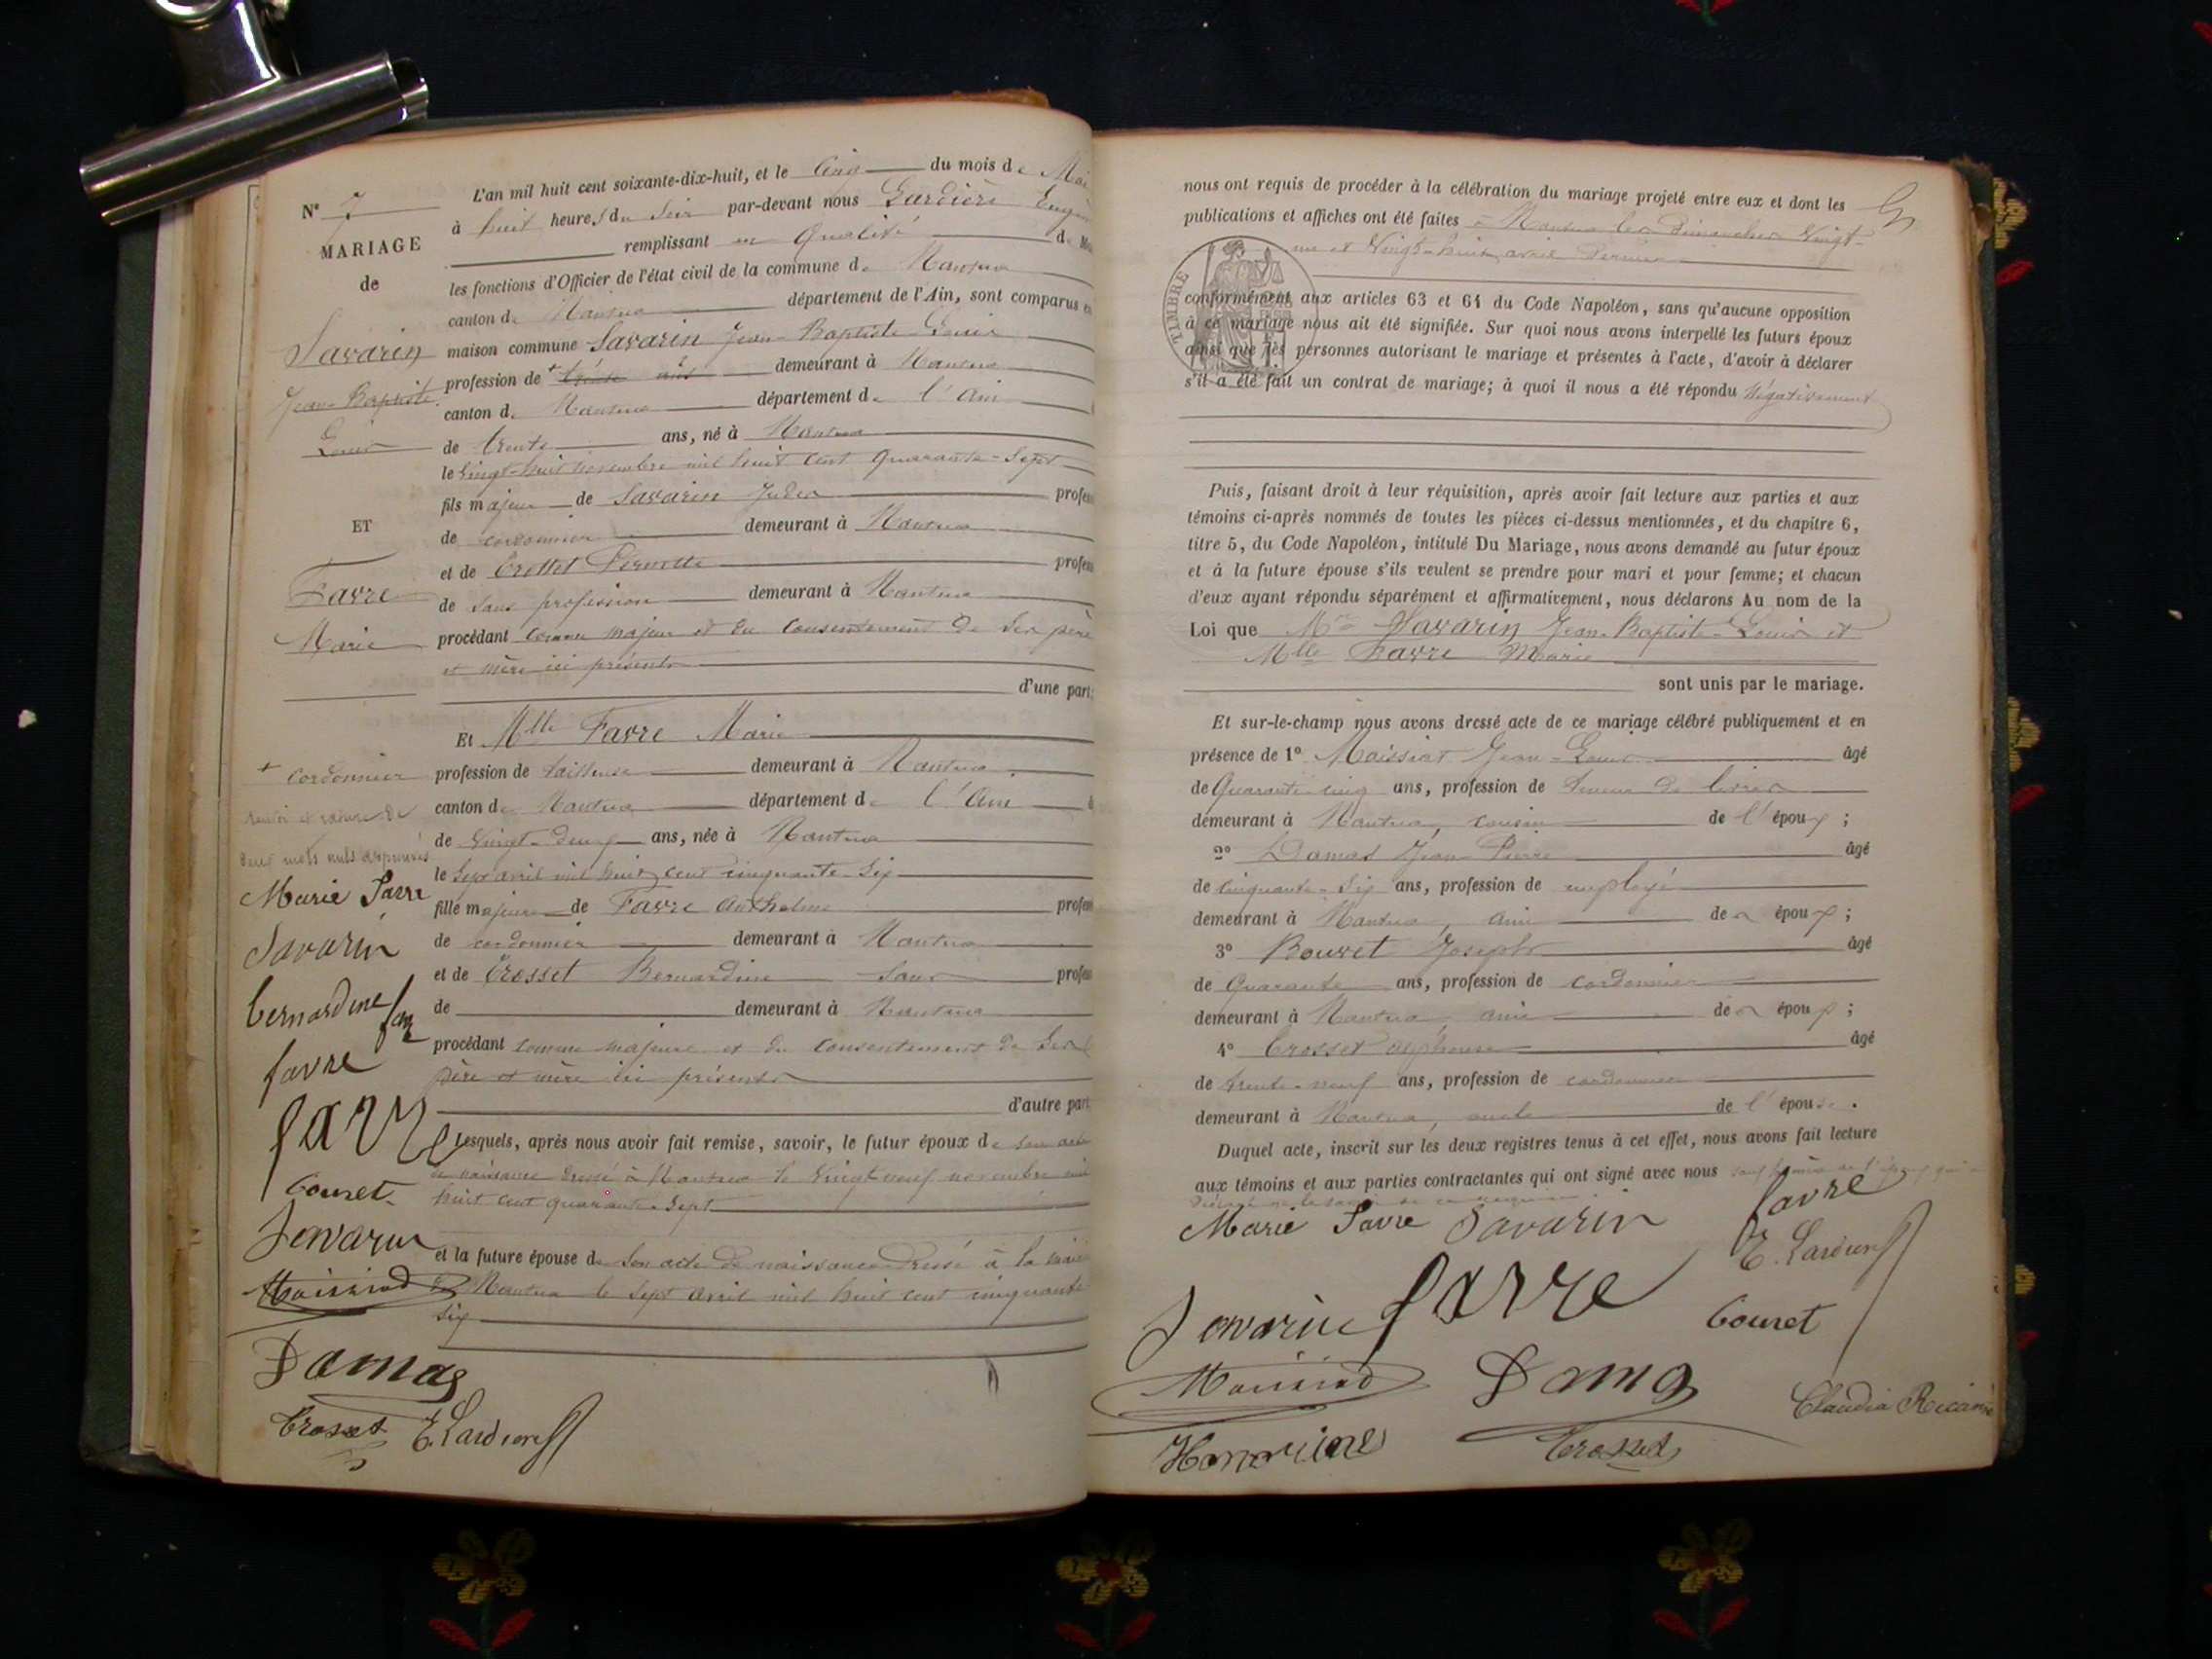 N° 7
MARIAGE
de
Savarin
Jean-Baptiste
Louis
ET
Favre
Marie
+ cordonnier
renvoi et rature de
deux mots nuls approuvés
Marie Favre
Savarin
bernardine
favre
favre
Bouret
Savarin
Maissiat
Damas
Crosset E. Lardière
L'an mil huit cent soixante-dix-huit, et le cinq du mois de Mai
à huit heures du soir par-devant nous Lardière Eugène
remplissant en qualité de
les fonctions d'Officier de l'état civil de la commune de Nantua
canton de Nantua département de l'Ain, sont comparus en
maison commune Savarin Jean-Baptiste-Louis
profession de + demeurant à Nantua
canton de Nantua département de l'Ain
de trente ans, né à Nantua
le vingt-huit novembre mil huit cent quarante-sept
fils majeur de Savarin Jules profes
de cordonnier demeurant à Nantua
et de Pernette profes
de sans profession demeurant à Nantua
procédant comme majeur et du consentement de ses père
et mère ici présents
d'une part;
Et Mlle Favre Marie
profession de tailleuse demeurant à Nantua
canton de Nantua département de l'Ain
de vingt-deux ans, née à Nantua
le sept avril mil huit cent cinquante-six
fille majeure de Favre Anthelme profes
de cordonnier demeurant à Nantua
et de Crosset Bernardine sans profes
de demeurant à Nantua
procédant comme majeure et du consentement de ses
père et mère ici présents
d'autre part
Lesquels, après nous avoir fait remise, savoir, le futur époux de son acte
de naissance dressé à Nantua le vingt neuf novembre mil
huit cent quarante-sept
et la future épouse de son acte de naissance dressé à la mairie
de Nantua le sept avril mil huit cent cinquante
six
nous ont requis de procéder à la célébration du mariage projeté entre eux et dont les
publications et affiches ont été faites à Nantua les dimanches vingt-
un et vingt-huit avril dernier
TIMBRE
conformément aux articles 63 et 64 du Code Napoléon, sans qu'aucune opposition
à ce mariage nous ait été signifiée. Sur quoi nous avons interpellé les futurs époux
ainsi que les personnes autorisant le mariage et présentes à l'acte, d'avoir à déclarer
s'il a été fait un contrat de mariage; à quoi il nous a été répondu Négativement
Puis, faisant droit à leur réquisition, après avoir fait lecture aux parties et aux
témoins ci-après nommés de toutes les pièces ci-dessus mentionnées, et du chapitre 6,
titre 5, du Code Napoléon, intitulé Du Mariage, nous avons demandé au futur époux
et à la future épouse s'ils veulent se prendre pour mari et pour femme; et chacun
d'eux ayant répondu séparément et affirmativement, nous déclarons Au nom de la
Loi que Mr Savarin Jean-Baptiste-Louis et
Mlle Favre Marie
sont unis par le mariage.
Et sur-le-champ nous avons dressé acte de ce mariage célébré publiquement et en
présence de 1° Maissiat Jean-Louis âgé
de Quarante-cinq ans, profession de teneur de livres
demeurant à Nantua, cousin de l'époux ;
2° Damas Jean Pierre âgé
de cinquante-six ans, profession de employé
demeurant à Nantua, ami des époux ;
3° Bouret Joseph âgé
de Quarante ans, profession de cordonnier
demeurant à Nantua, ami des époux ;
4° Crosset Alphonse âgé
de trente-neuf ans, profession de cordonnier
demeurant à Nantua, oncle de l'épouse.
Duquel acte, inscrit sur les deux registres tenus à cet effet, nous avons fait lecture
aux témoins et aux parties contractantes qui ont signé avec nous sauf la mère de l'époux qui a
déclaré ne le savoir de ce requise
Marie Favre Savarin favre
E. Lardière
Savarin favre
Bouret
Maissiat Damas
Claudia
Crosset